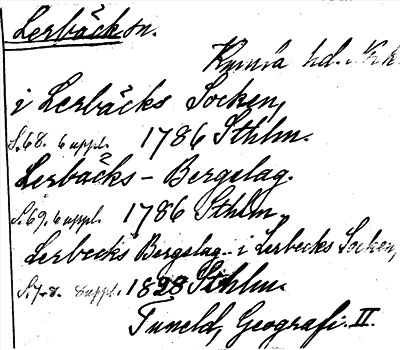 Lerbäck sn.
Kumla hd.
i Lerbäcks Socken,
S. 68. 6 uppl. 1786 Sthlm.
Lerbäcks - Bergslag.
S. 69. 6 uppl. 1786 Sthlm
Lerbecks Bergslag - i Lerbecks Socken,
8 uppl. 1828 Sthlm.
Tuneld, Geografi. II.